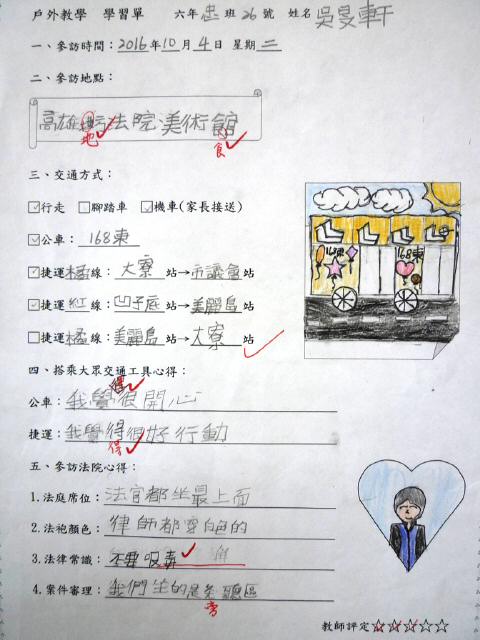 戶外教學 學習單 六年忠班26號 姓名吳旻軒
一、參訪時間：2016年10月4日 星期三
二、參訪地點：
高雄 法院美術館
地
食
三、交通方式：
行走 腳踏車 機車(家長接送)
公車：168東
捷運橘線：大寮站→市議會站
捷運紅線：凹子底站→美麗島站
捷運橘線：美麗島站→大寮站
168東 168東
四、搭乘大眾交通工具心得：
公車：我覺得很開心
捷運：我覺得很好行動
得
五、參訪法院心得：
1.法庭席位：法官都坐最上面
2.法袍顏色：律師都穿白色的
3.法律常識：不要吸毒
4.案件審理：我們坐的是 聽區
旁
教師評定☆☆☆☆☆